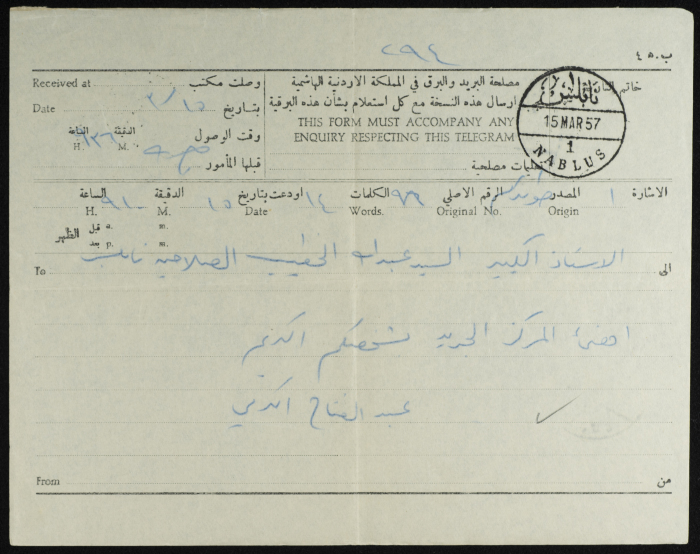 ٢٩٤
ب. ٥ ٤
Received at وصلت مكتب
مصلحة البريد والبرق في المملكة الاردنية الهاشمية
Date بتاريخ ١٥/٣
ارسال هذه النسخة مع كل استعلام بشأن هذه البرقية
THIS FORM MUST ACCOMPANY ANY
ENQUIRY RESPECTING THIS TELEGRAM
الساعة الدقيقة وقت الوصول
H. M.
قبلها المأمور
تعليمات مصلحية
خاتم
نابلس
15 MAR 57
1
NABLUS
الاشارة ١ المصدر الرقم الاصلي ٩٦ الكلمات ١٤ اودعت بتاريخ ١٥ الدقيقة الساعة ٩١٠
Origin Original No. Words. Date M. H.
قبل a. m. الظهر
بعد p. m.
To الى
الاستاذ الكبير السيد عبدالله الخطيب الصلاحية نابلس
اهنئ المركز الجديد بشخصكم الكريم
عبد الفتاح
From من